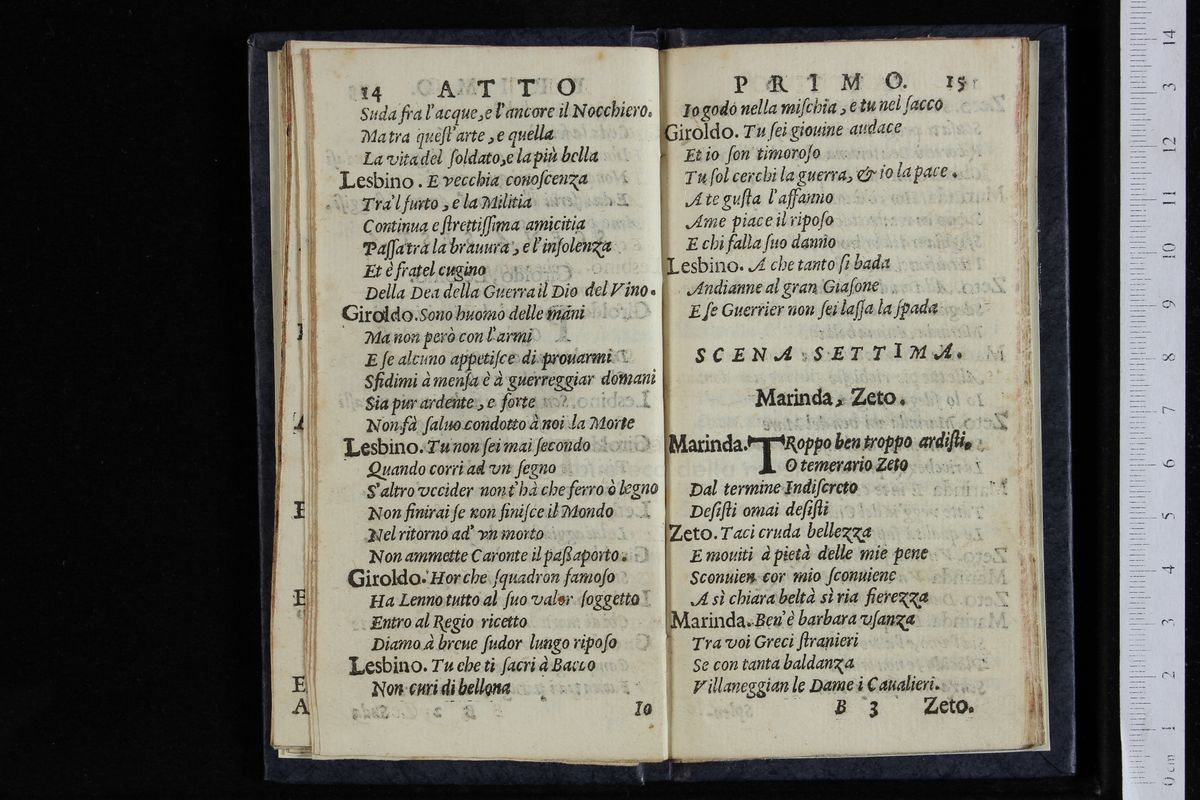 14 ATTO
Suda fra l'acque, e l'ancore il Nocchiero.
Ma tra queſt'arte, e quella
La vita del ſoldato, e la più bella
Lesbino. E vecchia conoſcenza
Tra'l furto, e la Militia
Continua e ſtrettiſſima amicitia
Paſſa tra la brauura, e l'inſolenza
Et è fratel cugino
Della Dea della Guerra il Dio del Vino.
Giroldo. Sono huomo delle mani
Ma non però con l'armi
E ſe alcuno appetiſce di prouarmi
Sfidimi à menſa è à guerreggiar domani
Sia pur ardente, e forte
Non fà ſaluo condotto à noi la Morte
Lesbino. Tu non ſei mai ſecondo
Quando corri ad vn ſegno
S'altro vccider non t'hà che ferro ò legno
Non finirai ſe non finiſce il Mondo
Nel ritorno ad' vn morto
Non ammette Caronte il paßaporto.
Giroldo. Hor che ſquadron famoſo
Ha Lenno tutto al ſuo valor ſoggetto
Entro al Regio ricetto
Diamo à breue ſudor lungo ripoſo
Lesbino. Tu che ti ſacri à Bacco
Non curi di bellona
Io
PRIMO. 15
Io godo nella miſchia, e tu nel ſacco
Giroldo. Tu ſei giouine audace
Et io ſon timoroſo
Tu ſol cerchi la guerra, & io la pace.
A te guſta l'affanno
A me piace il ripoſo
E chi falla ſuo danno
Lesbino. A che tanto ſi bada
Andianne al gran Giaſone
E ſe Guerrier non ſei laſſa la ſpada
SCENA SETTIMA.
Marinda, Zeto.
Marinda. TRoppo ben troppo ardiſti.
O temerario Zeto
Dal termine Indiſcreto
Deſiſti omai deſiſti
Zeto. Taci cruda bellezza
E mouiti à pietà delle mie pene
Sconuien cor mio ſconuiene
A sì chiara beltà sì ria fierezza
Marinda. Ben'è barbara vſanza
Tra voi Greci ſtranieri
Se con tanta baldanza
Villaneggian le Dame i Caualieri.
B 3 Zeto.